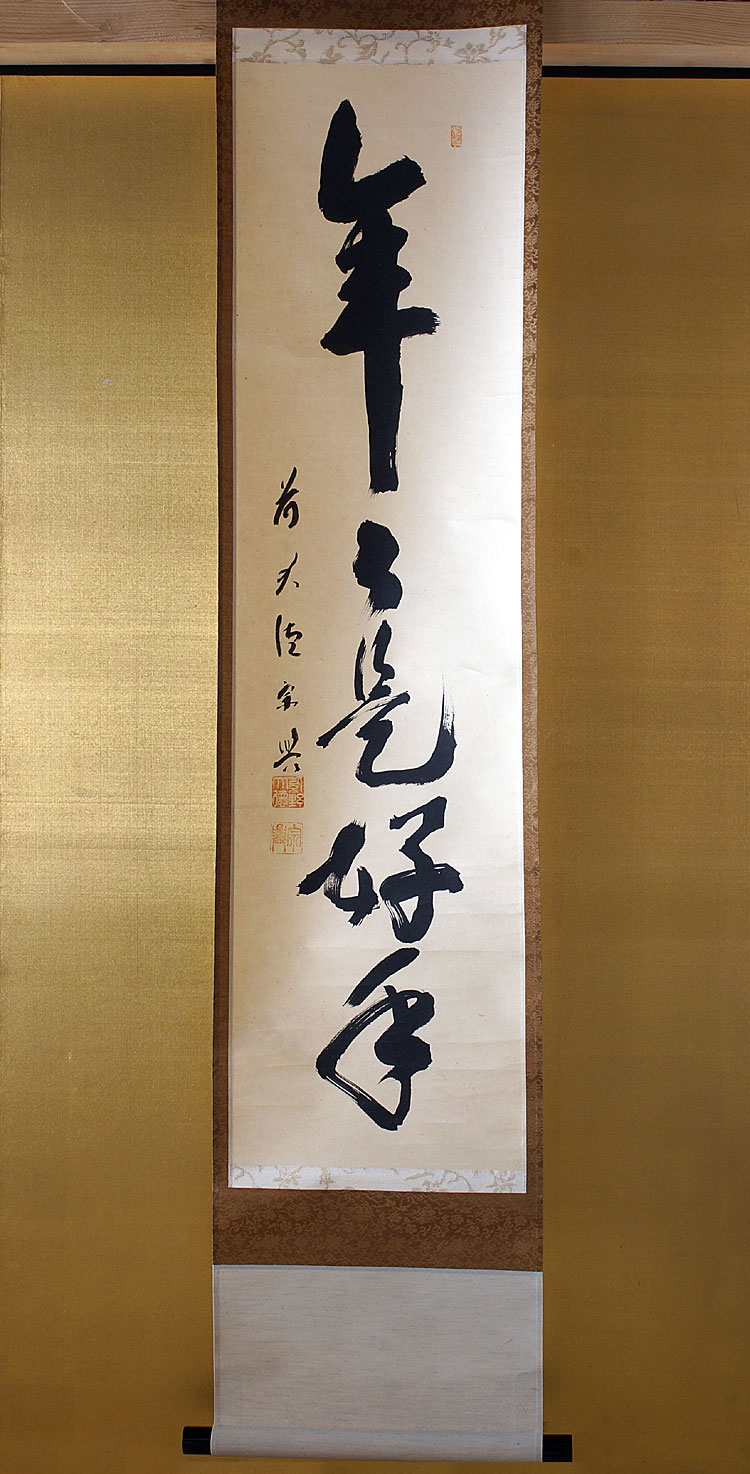 年々是好年
前大徳宗興